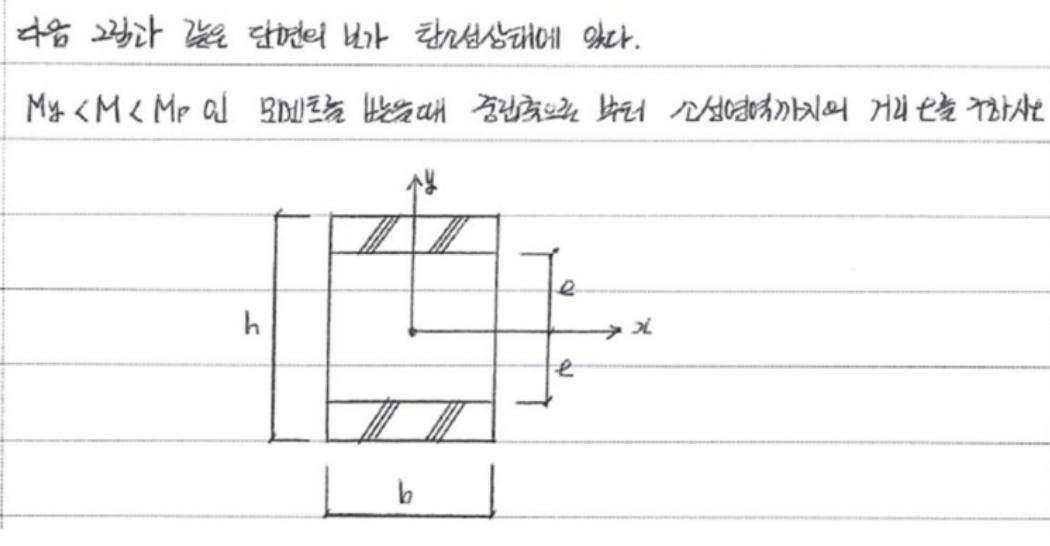 다음 그림과 같은 단면의 보가 탄소성상태에 있다.
My < M < Mp 인 모멘트를 받을때 중립축으로 부터 소성영역까지의 거리 e를 구하시오
y
e
h
x
e
b